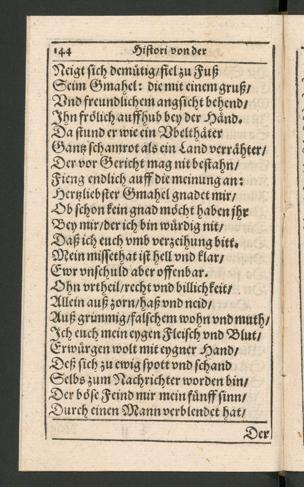 144 Histori von der
Neigt sich demütig/fiel zu Fuß
Seim Gmahel: die mit einem gruß/
Vnd freundlichem angsicht behend/
Ihn frölich auffhub bey der Händ.
Da stund er wie ein Vbelthäter
Gantz schamrot als ein Land verrähter/
Der vor Gericht mag nit bestahn/
Fieng endlich auff die meinung an:
Hertzliebster Gmahel gnadet mir/
Ob schon kein gnad möcht haben jhr
Bey mir/der ich bin würdig nit/
Daß ich euch vmb verzeihung bitt.
Mein missethat ist hell vnd klar/
Ewr vnschuld aber offenbar.
Ohn vrtheil/recht vnd billichkeit/
Allein auß zorn/haß vnd neid/
Auß grünmig/falschem wohn vnd muth/
Ich euch mein eygen Fleisch vnd Blut/
Erwürgen wolt mit eygner Hand/
Deß sich zu ewig spott vnd schand
Selbs zum Nachrichter worden bin/
Der böse Feind mir mein fünff sinn/
Durch einen Mann verblendet hat/
Der